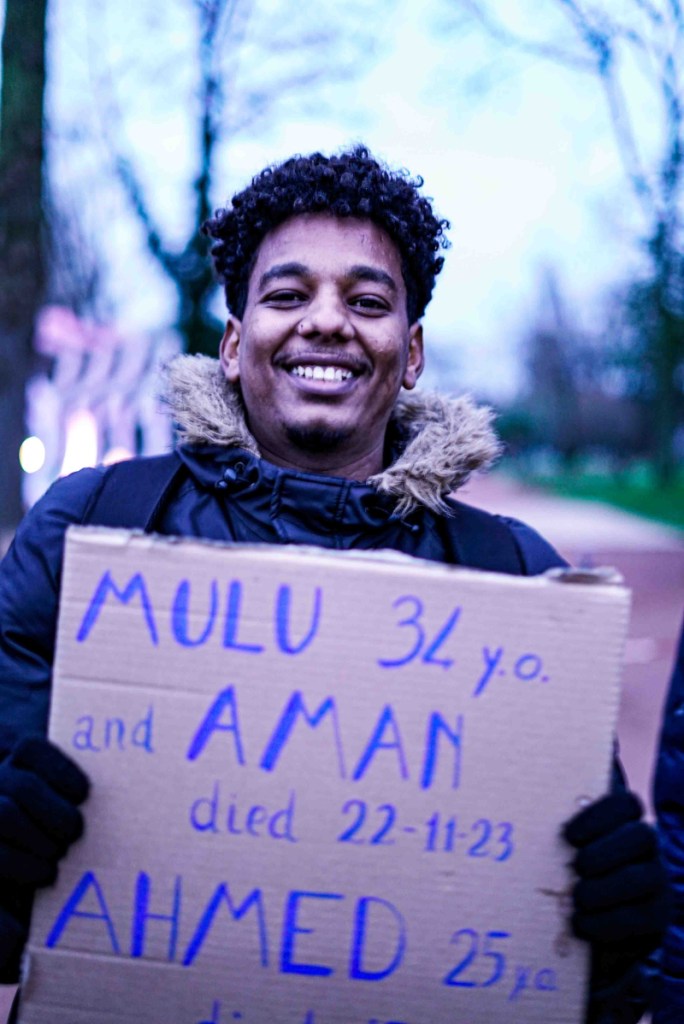 MULU 34 y.o.
and AMAN
died 22-11-23
AHMED 25 y.o.
died